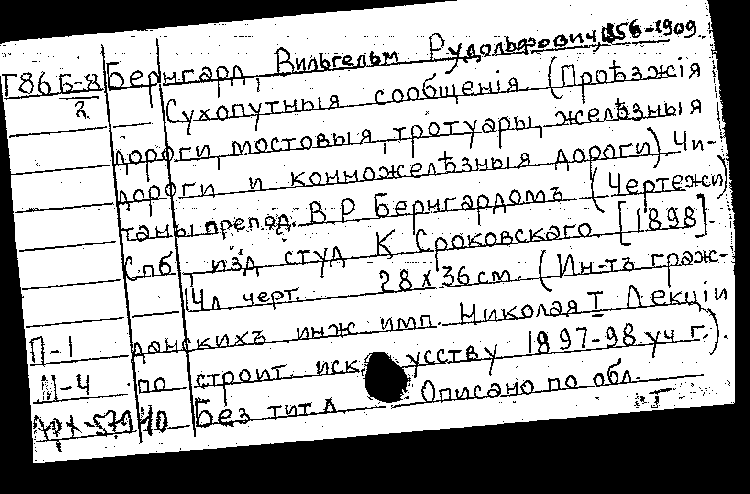 Г86 Б-8 Бернгард, Вильгельм Рудольфович, 1856-1909
2 Сухопутныя сообщенія (Проѣзжія
дороги, мостовыя, тротуары, желѣзныя
дороги и конножелѣзныя дороги) Чи-
таны препод. В Р Бернгардомъ (Чертежи)
Спб, изд студ К Сроковскаго. [1898].
4л черт. 28 х 36 см. (Ин-тъ граж-
П-1 данскихъ инж имп. Николая I Лекціи
М-4 по строит иск усству 1897-98 уч г.).
Арх-579/10 Без тит л Описано по обл.